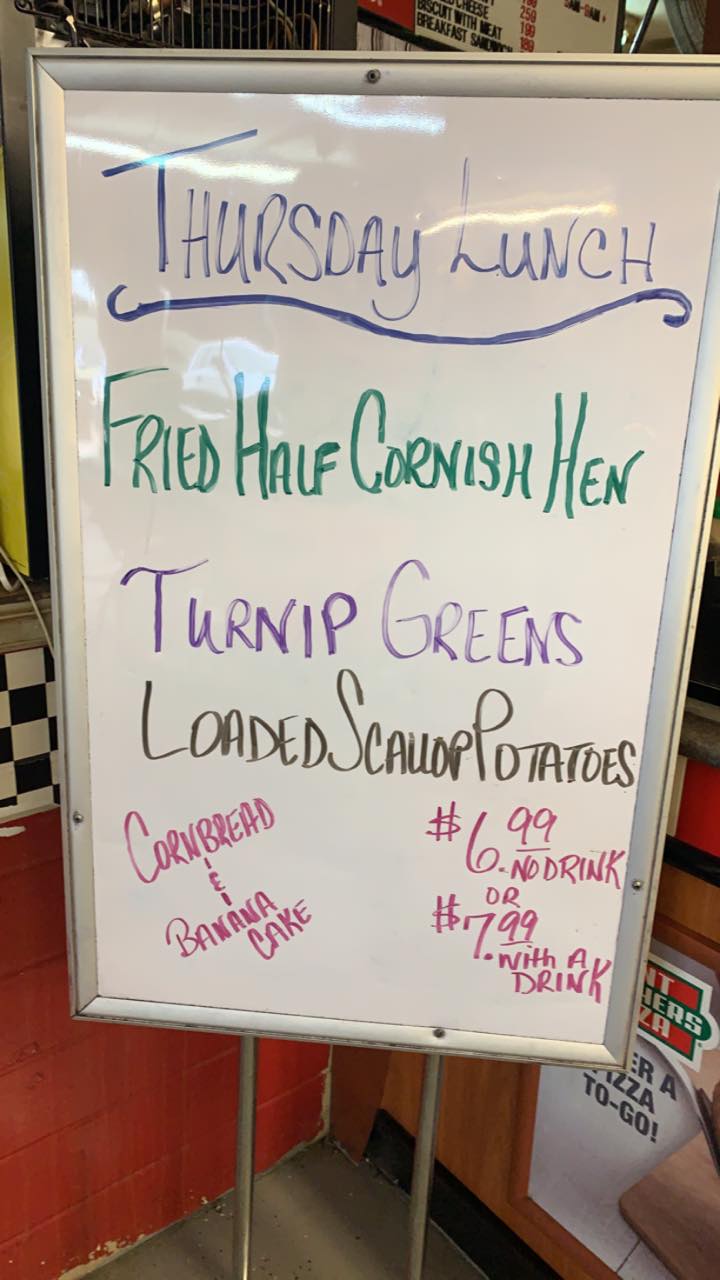 CHEESE
BISCUIT WITH MEAT
BREAKFAST SANDWICH
250
199
189
THURSDAY LUNCH
FRIED HALF CORNISH HEN
TURNIP GREENS
LOADED SCALLOP POTATOES
CORNBREAD
&
BANANA
CAKE
$6.99
NO DRINK
OR
$7.99
With A
DRINK
PIZZA
TO-GO!